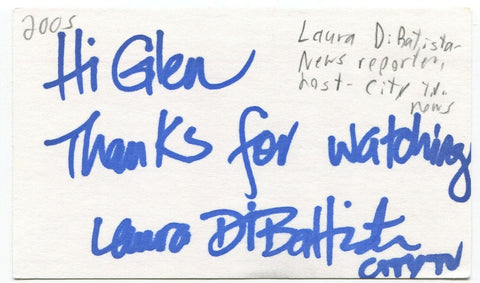 2005
Laura DiBatista-
News reporter,
host- City T.V.
news
Hi Glen
Thanks for watching
Laura DiBattista
CITY TV